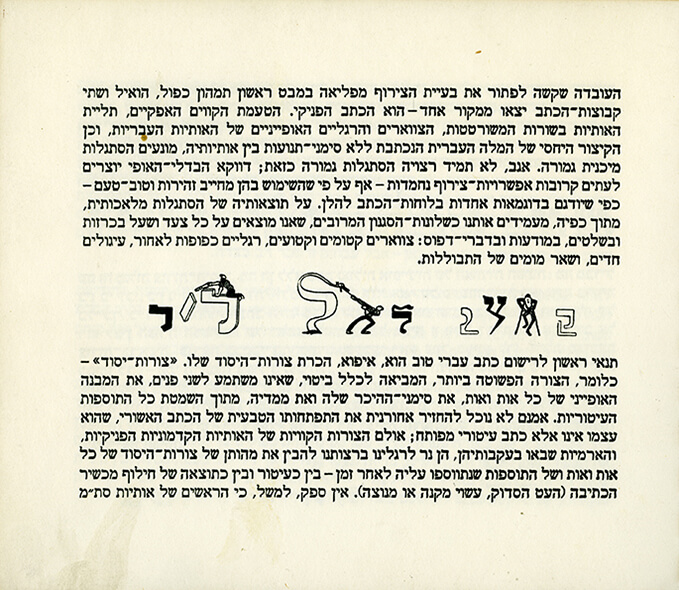 העובדה שקשה לפתור את בעיית הצירוף מפליאה במבט ראשון תמהון כפול, הואיל ושתי
קבוצות־הכתב יצאו ממקור אחד – הוא הכתב הפניקי. הטעמת הקווים האפקיים, תליית
האותיות בשורות המשורטטות, הצווארים והרגליים האופייניים של האותיות העבריות, וכן
הקיצור היחסי של המלה העברית הנכתבת ללא סימני־תנועות בין אותיותיה, מונעים הסתגלות
מיכנית גמורה. אגב, לא תמיד רצויה הסתגלות גמורה כזאת; דווקא הבדלי־האופי יוצרים
לעתים קרובות אפשרויות־צירוף נחמדות – אף על פי שהשימוש בהן מחייב זהירות וטוב־טעם –
כפי שיודגם בדוגמאות אחדות בלוחות־הכתב להלן. על תוצאותיה של הסתגלות מלאכותית,
מתוך כפיה, מעמידים אותנו כשלונות־הסגנון המרובים, שאנו מוצאים על כל צעד ושעל בכרזות
ובשלטים, במודעות ובדברי־דפוס: צווארים קטומים וקטועים, רגליים כפופות לאחור, עינולים
חדים, ושאר מומים של התבוללות.
תנאי ראשון לרישום כתב עברי טוב הוא, איפוא, הכרת צורות־היסוד שלו. «צורות־יסוד» –
כלומר, הצורה הפשוטה ביותר, המביאה לכלל ביטוי, שאינו משתמע לשני פנים, את המבנה
האופייני של כל אות ואות, את סימני־ההיכר שלה ואת ממדיה, מתוך השמטת כל התוספות
העיטוריות. אמנם לא נוכל להחזיר אחורנית את התפתחותו הטבעית של הכתב האשורי, שהוא
עצמו אינו אלא כתב עיטורי מפותח; אולם הצורות הקוויות של האותיות הקדמוניות הפניקיות,
והארמיות שבאו בעקבותיהן, הן נר לרגלינו ברצותנו להבין את מהותן של צורות־היסוד של כל
אות ואות ושל התוספות שנתווספו עליה לאחר זמן – בין כעיטור ובין כתוצאה של חילוף מכשיר
הכתיבה (העט הסדוק, עשוי מקנה או מנוצה). אין ספק, למשל, כי הראשים של אותיות סת״מ